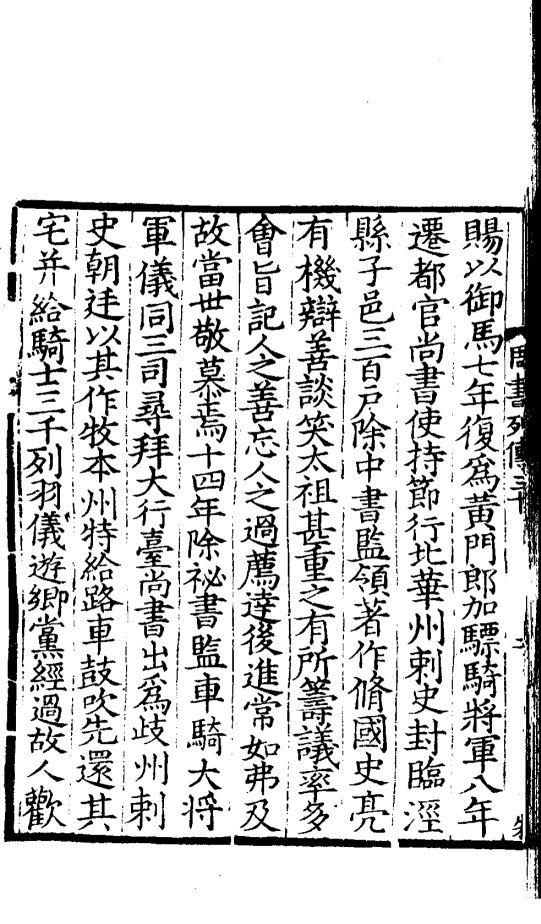 周書列傳三十
賜以御馬七年復爲黃門郎加驃騎將軍八年
遷都官尚書使持節行北華州刺史封臨涇
縣子邑三百戸除中書監領著作脩國史亮
有機辯善談笑太祖甚重之有所籌議率多
會旨記人之善忘人之過薦達後進常如弗及
故當世敬慕焉十四年除祕書監車騎大將
軍儀同三司尋拜大行臺尚書出爲歧州刺
史朝廷以其作牧本州特給路車鼓吹先還其
宅并給騎士三千列羽儀遊鄉黨經過故人歡